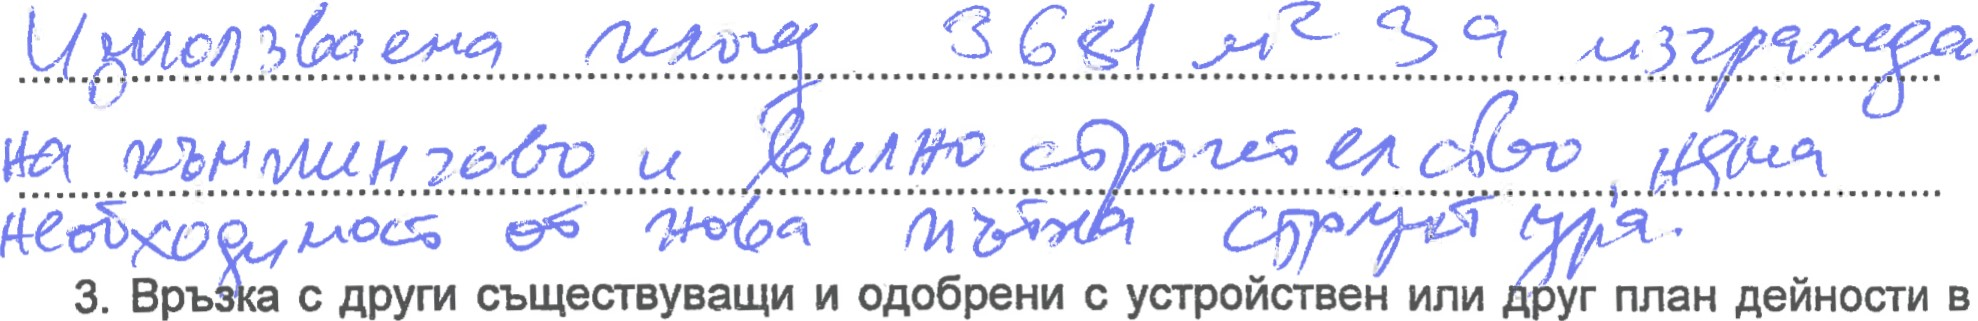 Използваема площ 3681 м² за изгражда
на къмпингово и вилно строителство, няма
необходимост от нова пътна структура.
3. Връзка с други съществуващи и одобрени с устройствен или друг план дейности в